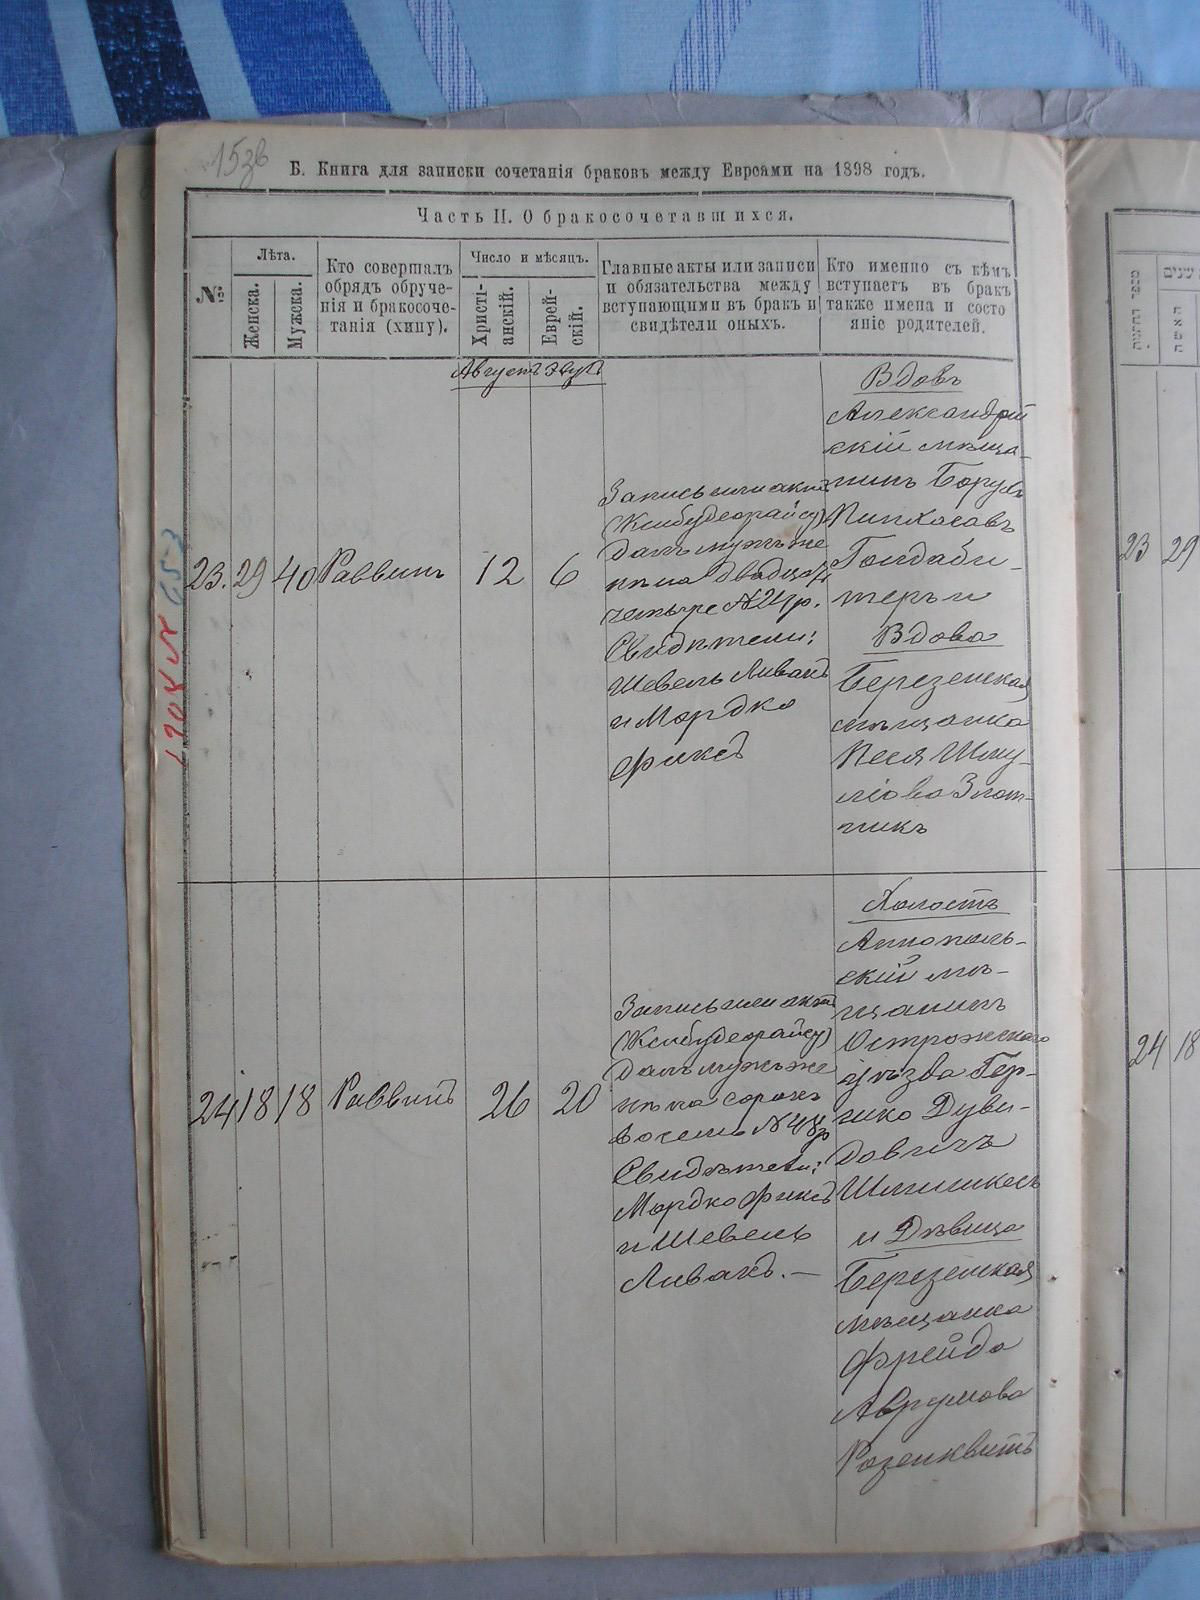 153в
Б. Книга для записки сочетанія браковъ между Евреями на 1898 годъ.
Часть II. О бракосочетавшихся.
№
Лѣта.
Женска.
Мужска.
Кто совершалъ
обрядъ обруче-
нія и бракосоче-
танія (хипу).
Число и мѣсяцъ.
Христі-
анскій.
Еврей-
скій.
Главные акты или записи
и обязательства между
вступающими въ бракъ и
свидѣтели оныхъ.
Кто именно съ кѣмъ
вступаетъ въ бракъ
также имена и состо
яніе родителей.
Августъ Элулъ
23. 29 40 Раввинъ 12 6
Запись или актъ
(Ксибудеорайсу)
далъ мужъ же
нѣ на двадцать
четыре №24р.
Свидѣтели:
Шевель Ливакъ
и Мордко
Фиксъ
Вдовъ
Александрій
скій мѣща-
нинъ Борухъ
Пинхасовъ
Гольдаби-
теръ и
Вдова
Березенская
мѣщанка
Песя Шму-
ліова Злот-
никъ
24 18 18 Раввинъ 26 20
Запись или актъ
(Ксибудеорайсу)
далъ мужъ же
нѣ на сорокъ
восемь №48р
Свидѣтели:
Мордко Фиксъ
и Шевель
Ливакъ.—
Холостъ
Аннополь-
скій мѣ-
щанинъ
Острожскаго
уѣзда Гер-
шко Дуви-
довичъ
и Дѣвица
Березенская
мѣщанка
Фрейда
Аврумова
Розенквитъ
23 29
24 18